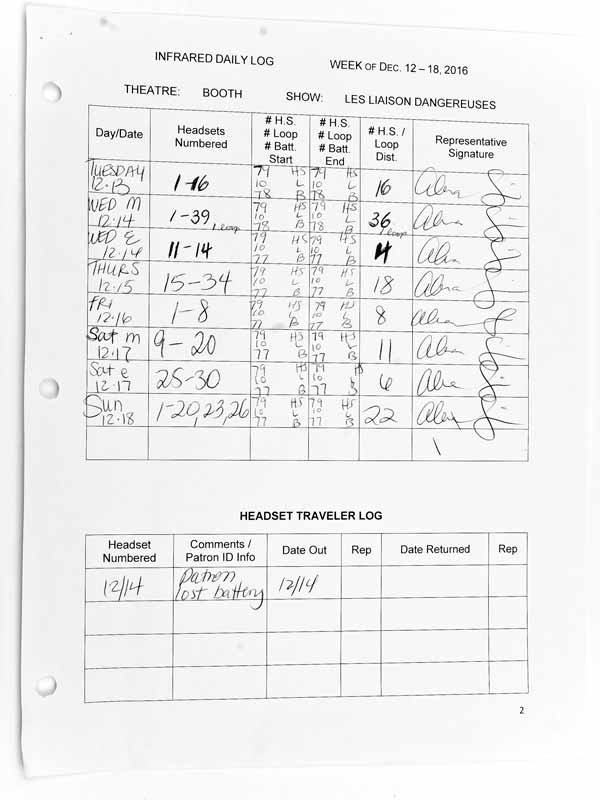 INFRARED DAILY LOG WEEK OF DEC. 12 – 18, 2016
THEATRE: BOOTH SHOW: LES LIAISON DANGEREUSES
Day/Date Headsets Numbered # H.S. # Loop # Batt. Start # H.S. # Loop # Batt. End # H.S. / Loop Dist. Representative Signature
TUESDAY 12.13 1-16 79 HS 10 L 78 B 79 HS 10 L 78 B 16
WED M 12.14 1-39, 1 loop 79 HS 10 L 78 B 79 HS 10 L 78 B 36, 1 loop
WED E 12.14 11-14 79 HS 10 L 77 B 79 HS 10 L 77 B 4
THURS 12.15 15-34 79 HS 10 L 77 B 79 HS 10 L 77 B 18
FRI 12.16 1-8 79 HS 10 L 77 B 79 HS 10 L 77 B 8
Sat m 12.17 9-20 79 HS 10 L 77 B 79 HS 10 L 77 B 11
Sat e 12.17 25-30 79 HS 10 L 77 B 79 HS 10 L 77 B 6
Sun 12.18 1-20, 23, 26 79 HS 10 L 77 B 79 HS 10 L 77 B 22
HEADSET TRAVELER LOG
Headset Numbered Comments / Patron ID Info Date Out Rep Date Returned Rep
12/14 Patron lost battery 12/14
2